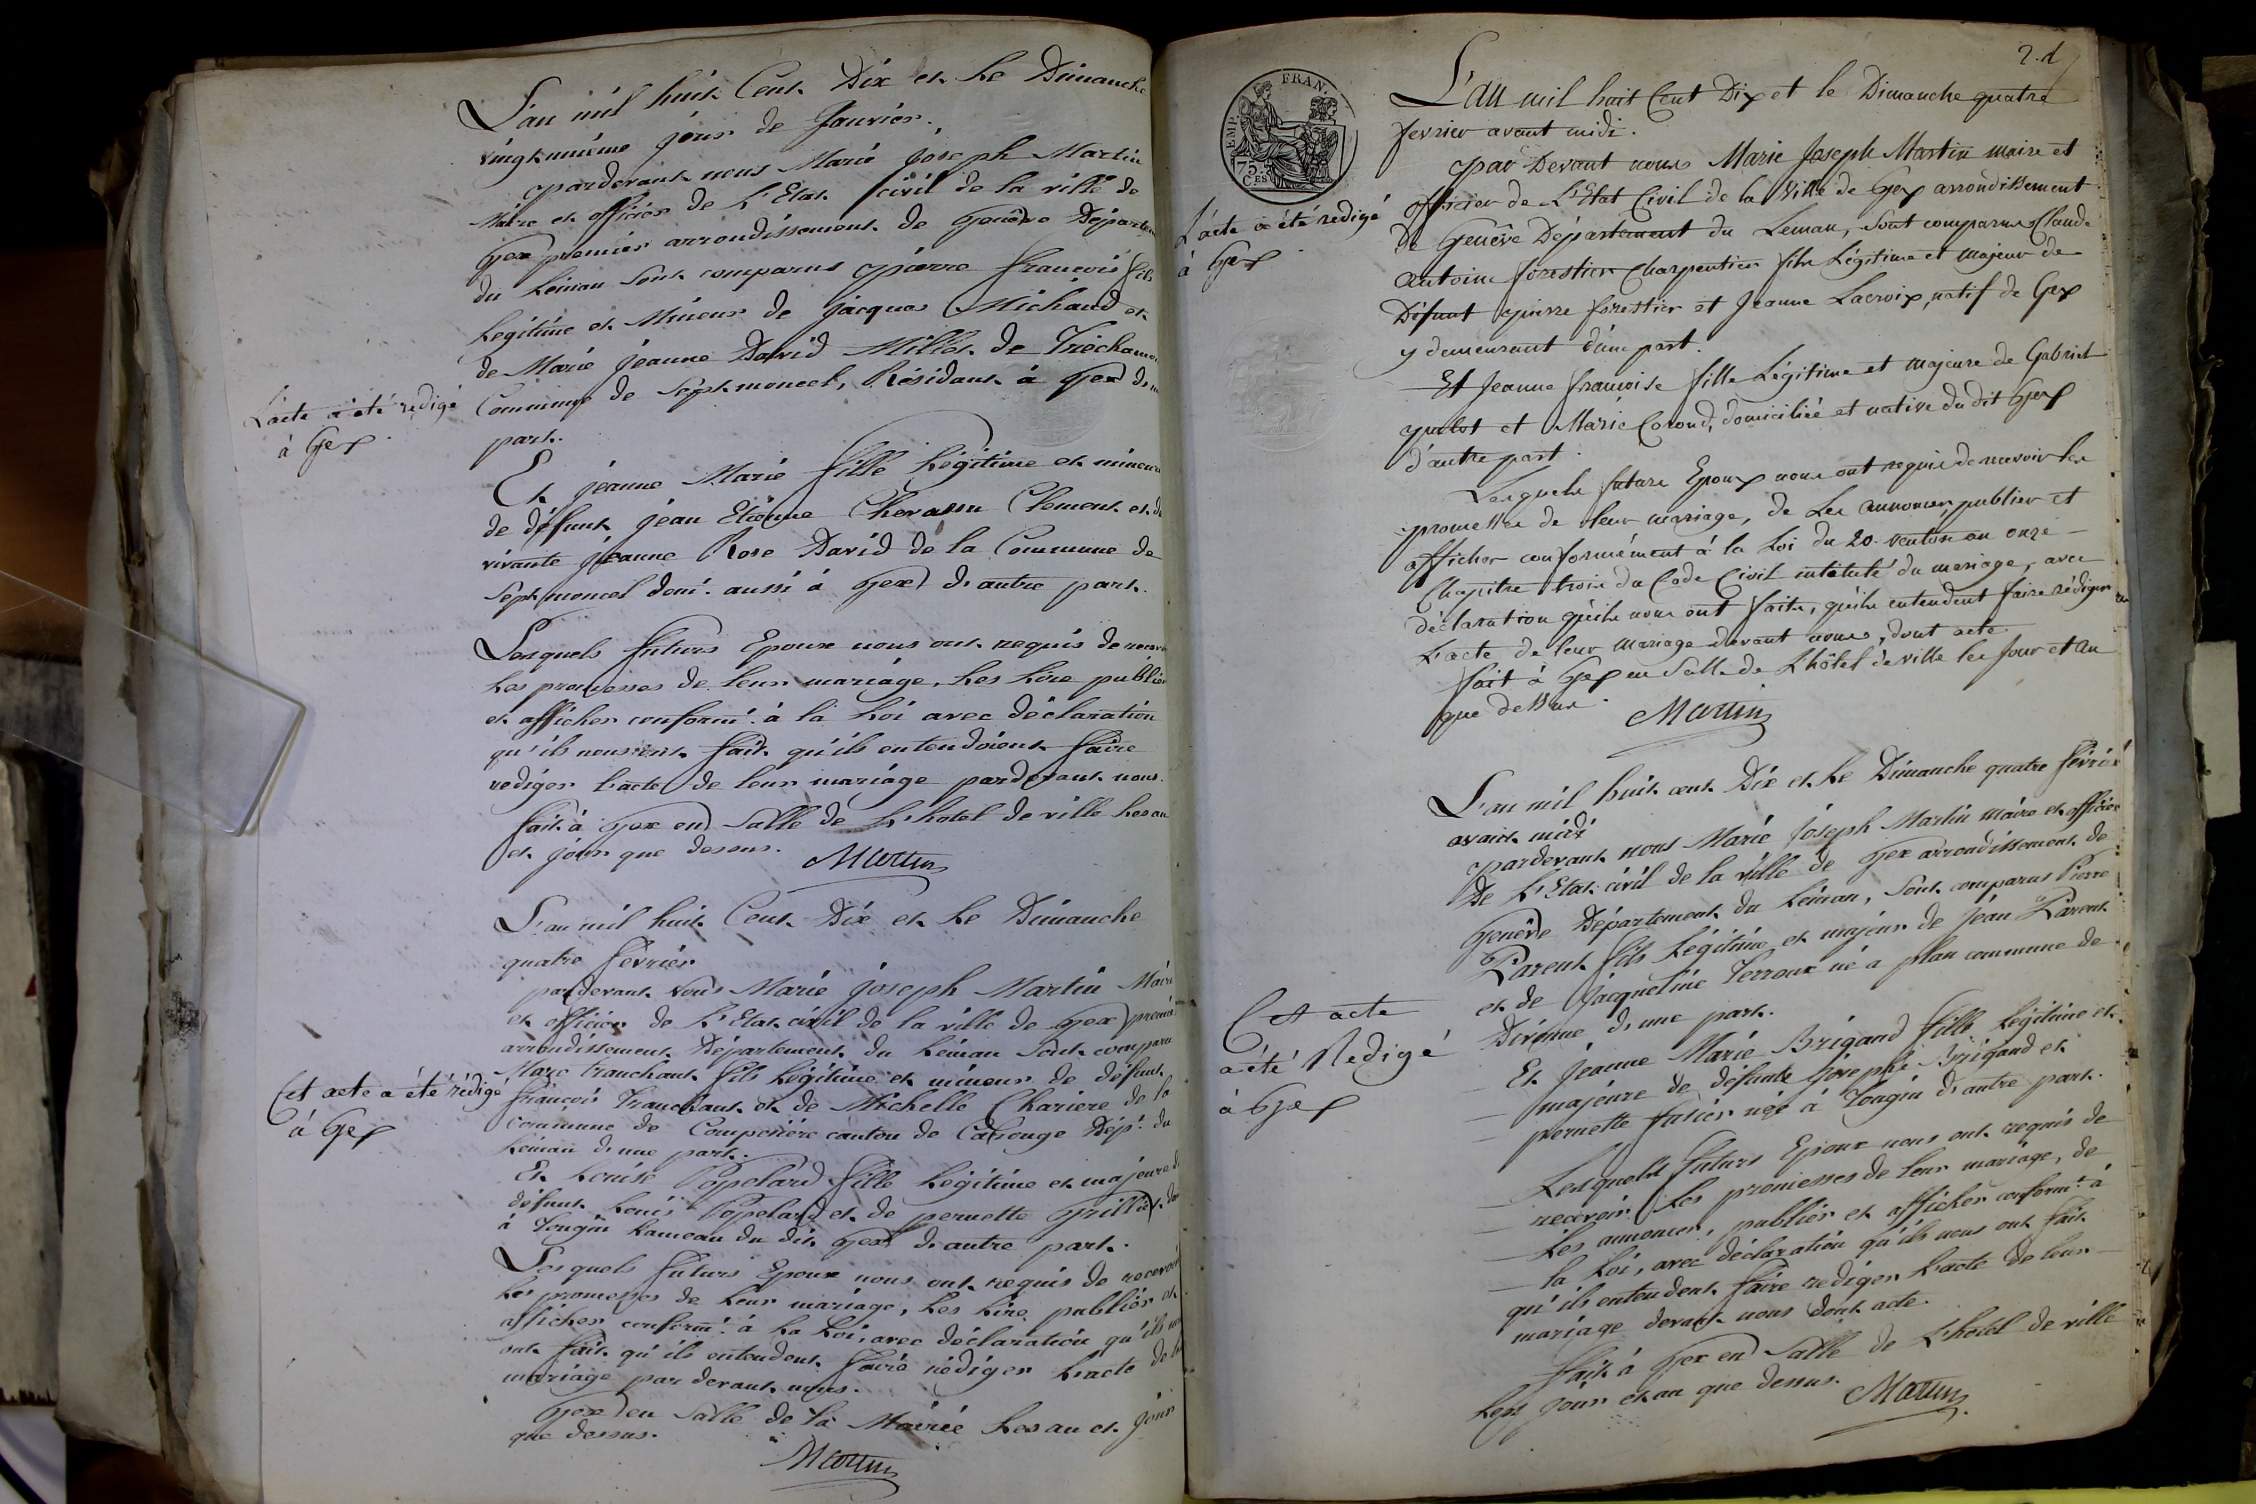 L'an mil huit Cent Dix et Le Dimanche
vingtunième jour de Janvier.
pardevant nous Marie Joseph Martin
Maire et officier de L'Etat civil de la ville de
Gex premier arrondissement de Genève Départem
du Léman sont comparus pierre françois fils
Legitime et Mineur de jacques Michaud et
de Marie jeanne David Millet de Tréchaumo
Commune de Septmoncel, Résidant à Gex d'une
part.
L'acte a été redigé
à Gex
Et jeanne Marie fille Légitime et mineure
de défunt jean Etienne Chevassu Clement et de
vivante jeanne Rose David de la Commune de
Septmoncel dom. aussi à Gex d'autre part.
Lesquels futurs Epoux nous ont requis de recevo
Les promesses de leur mariage, Les Lire publier
et afficher conformt. à la Loi avec déclaration
qu'ils nous ont fait qu'ils entendoient faire
rediger L'acte de leur mariage pardevant nous.
fait à Gex en Salle de L'hotel de ville Les an
et jour que dessus.
Martin
L'an mil huit Cent Dix et Le Dimanche
quatre février
pardevant nous Marie joseph Martin Maire
et officier de L'Etat civil de la ville de Gex premier
arrondissement Département du Léman sont comparu
Marc tranchant fils Légitime et mineur de défunt
françois Tranchant et de Michelle Chariere de la
commune de Compesière canton de Carouge Dépt. du
Léman d'une part.
Cet acte a été rédigé
à Gex
Et Louise Popelard fille Légitime et majeure de
défunt Louis Popelard et de pernette Grillet dom
à Tougin hameau du dit Gex d'autre part.
Lesquels futurs Epoux nous ont requis de recevoir
Les promesses de Leur mariage, Les Lire publier et
afficher conformt. à La Loi, avec déclaration qu'ils nous
ont fait qu'ils entendent faire rédiger L'acte de leur
mariage par devant nous.
Gex en Salle de la Mairie Les an et jour
que dessus.
Martin
2.d
EMP. FRAN.
75.
C.ES
L'an mil huit Cent Dix et le Dimanche quatre
fevrier avant midi.
par Devant nous Marie Joseph Martin maire et
officier de L'Etat Civil de la Ville de Gex arrondissement
de Genêve Département du Leman, Sont comparus Claude
Antoine forestier Charpentier fils Légitime et Majeur de
Défunt pierre forestier et Jeanne Lacroix, natif de Gex
y demeurant d'une part.
L'acte a été redigé
à Gex
Et Jeanne françoise fille Légitime et majeure de Gabriel
et Marie Corond, domiciliée et native du dit Gex
d'autre part.
Lesquels futurs Epoux nous ont requis de recevoir les
promesses de leur mariage, de Les annoncer, publier et
afficher conformément à la Loi du 20. ventose an onze
Chapitre trois du Code Civil intitulé du mariage, avec
déclaration qu'ils nous ont faite, qu'ils entendent faire rédiger
L'acte de leur mariage devant nous, dont acte
fait à Gex en Salle de L'hôtel de ville les Jour et an
que dessus.
Martin
L'an mil huit cent Dix et Le Dimanche quatre février
avant midi
pardevant nous Marie Joseph Martin maire et officier
de L'Etat civil de la ville de Gex arrondissement de
Genêve Département du Léman, Sont comparus Pierre
Parent fils Légitime et majeur de Jean Parent
et de Jacqueline Terroux né a plan commune de
Divonne d'une part.
Cet acte
a été Redigé
à Gex
Et Jeanne Marie Brigand fille Légitime et
majeure de défunte Joseph Brigand et
pernette futier née à Tougin d'autre part.
Lesquels futurs Epoux nous ont requis de
recevoir Les promesses de leur mariage, de
Les annoncer, publier et afficher conformt. à
la Loi, avec déclaration qu'ils nous ont fait
qu'ils entendent faire rediger L'acte de leur
mariage devant nous dont acte.
fait à Gex en Salle de L'hotel de ville
Les jour et an que dessus.
Martin